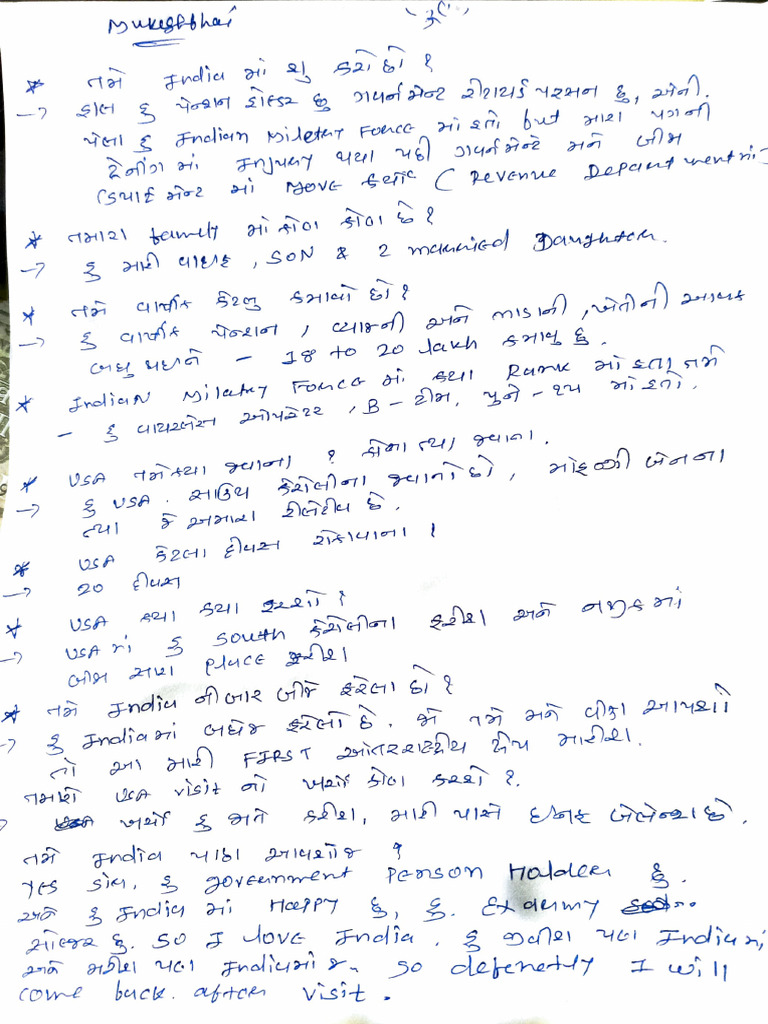 Mukeshbhai
* તમે India માં શુ કરો છો ?
→ હાલ હુ પેન્શન હોલ્ડર છુ ગવર્નમેન્ટ રીટાયર્ડ પરસન છુ, એની
પેલા હુ Indian Miletary Force માં હતો but મારા પગની
ટ્રેનીંગ માં Injury થયા પછી ગવર્નમેન્ટે મને બીજા
ડિપાર્ટમેન્ટ માં Move કર્યો ( Revenue Department માં)
* તમારા family માં કોણ કોણ છે ?
→ હુ મારી વાઇફ, SON & 2 married Daughter.
* તમે વાર્ષીક કેટલુ કમાવો છો ?
→ હુ વાર્ષીક પેન્શન, વ્યાજની અને ભાડાની, ખેતીની આવક
બધુ થઇને - 18 to 20 lakh કમાવુ છુ.
* Indian Miletry Force માં કયા Rank માં હતા તમે
- હુ વાયરલેસ ઓપરેટર, B - ટીમ, પુને - ૨૫ માં હતો.
* USA તમે કયા જવાના ? કોના ત્યા જવાના.
→ હુ USA. સાઉથ કેરોલીના જવાનો છો, બેનના
ત્યા જે અમારા રીલેટીવ છે.
* USA કેટલા દીવસ રોકાવાના ?
→ 20 દીવસ
* USA કયા કયા ફરશો ?
→ USA માં હુ South કેરોલીના ફરીશ અને નજીકમાં
બીજા સારા place ફરીશ
* તમે India ની બાર બીજે ફરેલા છો ?
→ હુ India માં બધેજ ફરેલો છે. જો તમે મને વીઝા આપશો
તો આ મારી FIRST આંતરરાષ્ટ્રીય ટ્રીપ મારીશ.
તમારો USA visit નો ખર્ચો કોણ કરશે ?
ખર્ચો હુ જાતે કરીશ, મારી પાસે ઇનફ બેલેન્સ છે.
તમે India પાછા આવશોજ ?
Yes હોવ, હુ government Penson Holder છુ.
અને હુ India માં Happy છુ, હુ. Ex army
સોલ્જર છુ. so I love India. હુ જીવીશ પણ India માં
અને મરીશ પણ India માં જ. so defenetly I will
come back after visit.